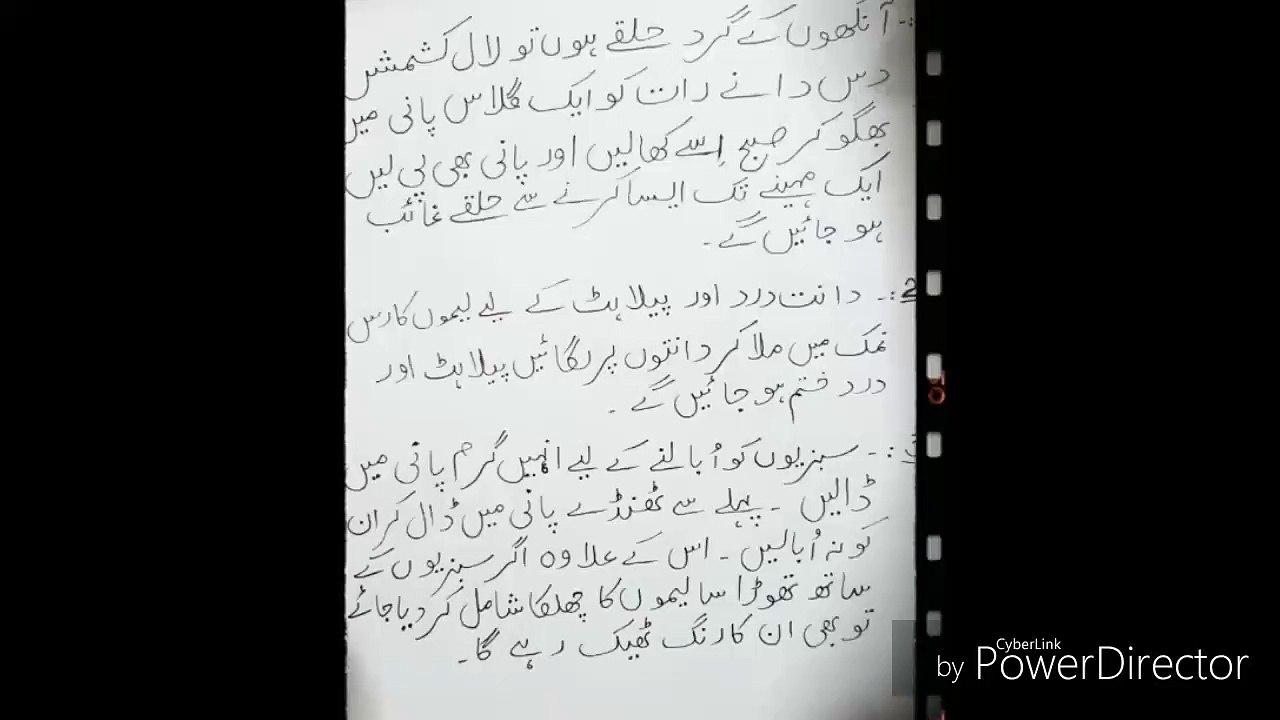 :۔ آنکھوں کے گرد حلقے ہوں تو لال کشمش
دس دانے رات کو ایک گلاس پانی میں
بھگو کر صبح اِسے کھالیں اور پانی بھی پی لیں
ایک مہینے تک ایسا کرنے سے حلقے غائب
ہو جائیں گے۔
2:۔ دانت درد اور پیلاہٹ کے لیے لیموں کا رس
نمک میں ملا کر دانتوں پر لگائیں پیلاہٹ اور
درد ختم ہو جائیں گے۔
3:۔ سبزیوں کو اُبالنے کے لیے انہیں گرم پانی میں
ڈالیں ۔ پہلے سے ٹھنڈے پانی میں ڈال کر ان
کو نہ اُبالیں ۔ اس کے علاوہ اگر سبزیوں کے
ساتھ تھوڑا سا لیموں کا چھلکا شامل کر دیا جائے
تو بھی ان کا رنگ ٹھیک رہے گا۔
CyberLink
by PowerDirector